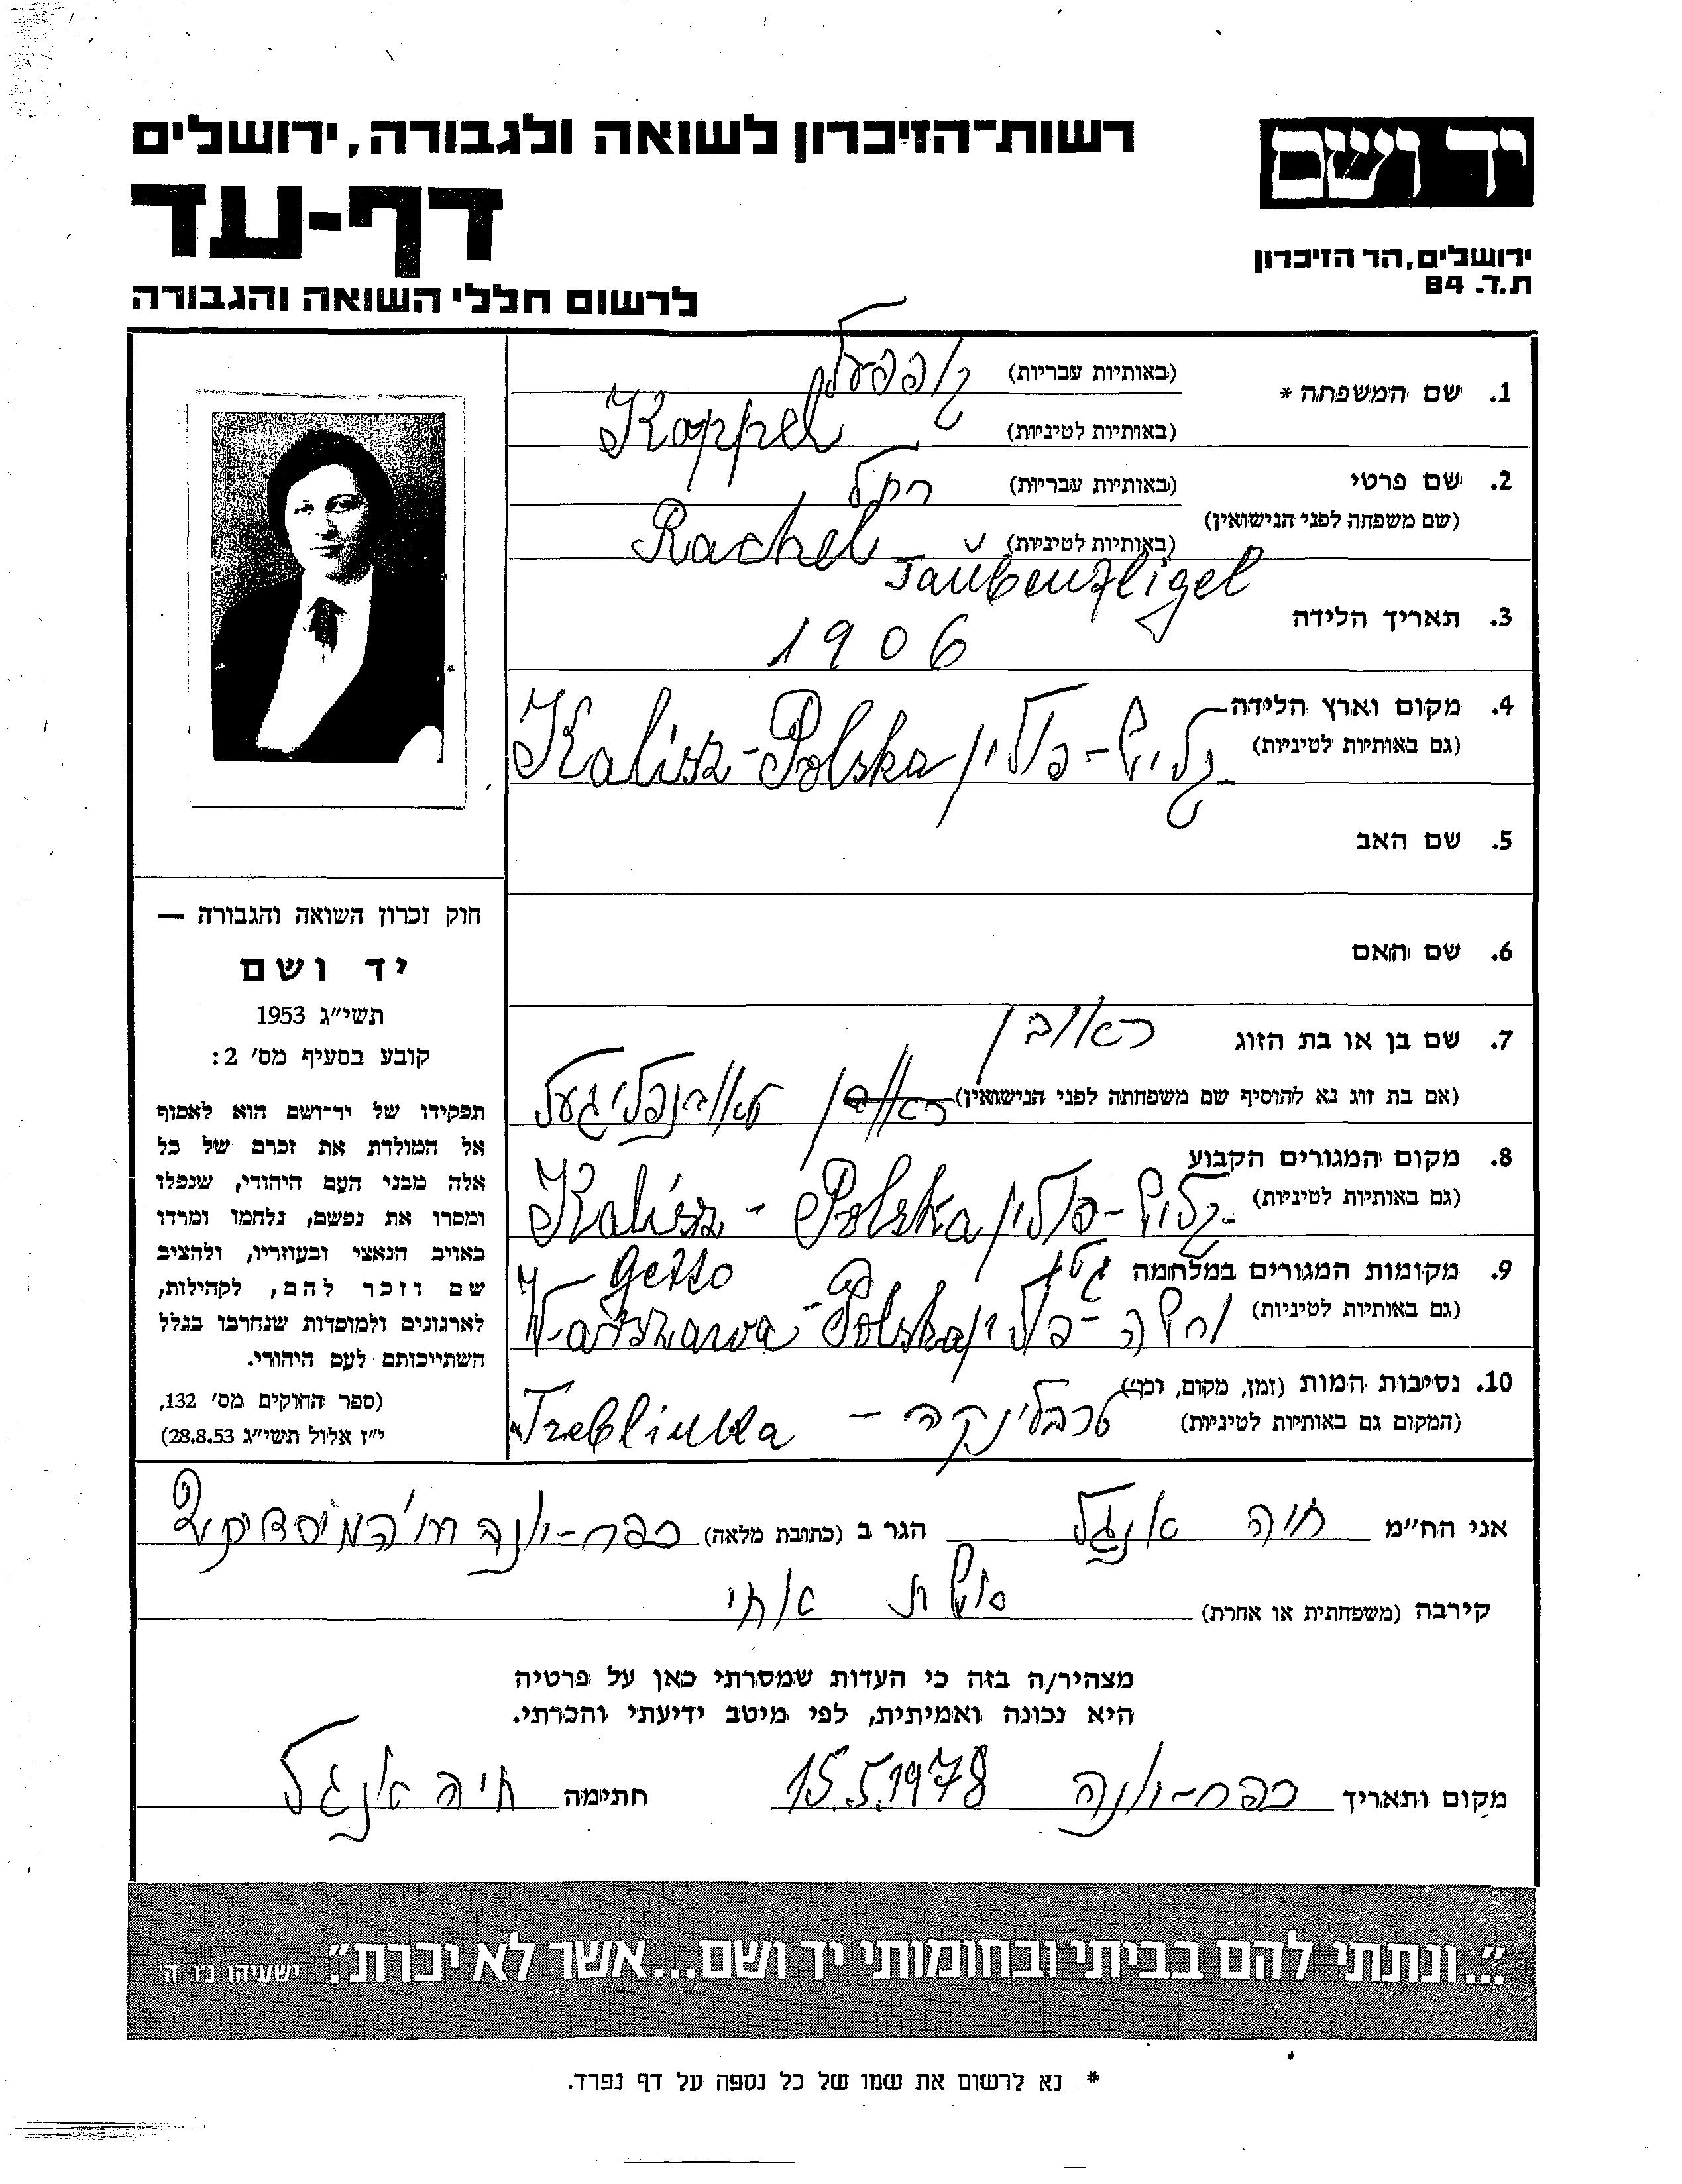 רשות־הזיכרון לשואה ולגבורה, ירושלים
יד ושם
דף-עד
ירושלים, הר הזיכרון
ת.ד. 84
לרשום חללי השואה והגבורה
1. שם המשפחה *
(באותיות עבריות) קאפפעל
(באותיות לטיניות) Koppel
2. שם פרטי
(באותיות עבריות) רחל
(שם משפחה לפני הנישואין)
(באותיות לטיניות) Rachel
Taubenfligel
3. תאריך הלידה
1906
4. מקום וארץ הלידה
(גם באותיות לטיניות) קליש - פולין Kalisz - Polska
5. שם האב
6. שם האם
7. שם בן או בת הזוג ראובן
(אם בת זוג נא להוסיף שם משפחתה לפני הנישואין) ראובן טאובנפליגעל
8. מקום המגורים הקבוע
(גם באותיות לטיניות) קליש - פולין Kalisz - Polska
9. מקומות המגורים במלחמה גטו Getto
(גם באותיות לטיניות) ורשה - פולין Warszawa - Polska
10. נסיבות המות (זמן, מקום, וכו')
(המקום גם באותיות לטיניות) טרבלינקה - Treblinka
חוק זכרון השואה והגבורה —
יד ושם
תשי"ג 1953
קובע בסעיף מס' 2:
תפקידו של יד-ושם הוא לאסוף
אל המולדת את זכרם של כל
אלה מבני העם היהודי, שנפלו
ומסרו את נפשם, נלחמו ומרדו
באויב הנאצי ובעוזריו, ולהציב
שם וזכר להם, לקהילות,
לארגונים ולמוסדות שנחרבו בגלל
השתייכותם לעם היהודי.
(ספר החוקים מס' 132,
י"ז אלול תשי"ג 28.8.53)
אני הח"מ חיה אנגל הגר ב (כתובת מלאה) כפר-יונה רח'
קירבה (משפחתית או אחרת) אשת אחי
מצהיר/ה בזה כי העדות שמסרתי כאן על פרטיה
היא נכונה ואמיתית, לפי מיטב ידיעתי והכרתי.
מקום ותאריך כפר-יונה 15.5.1978 חתימה חיה אנגל
"...ונתתי להם בביתי ובחומותי יד ושם...אשר לא יכרת". ישעיהו נ"ו ה'
* נא לרשום את שמו של כל נספה על דף נפרד.